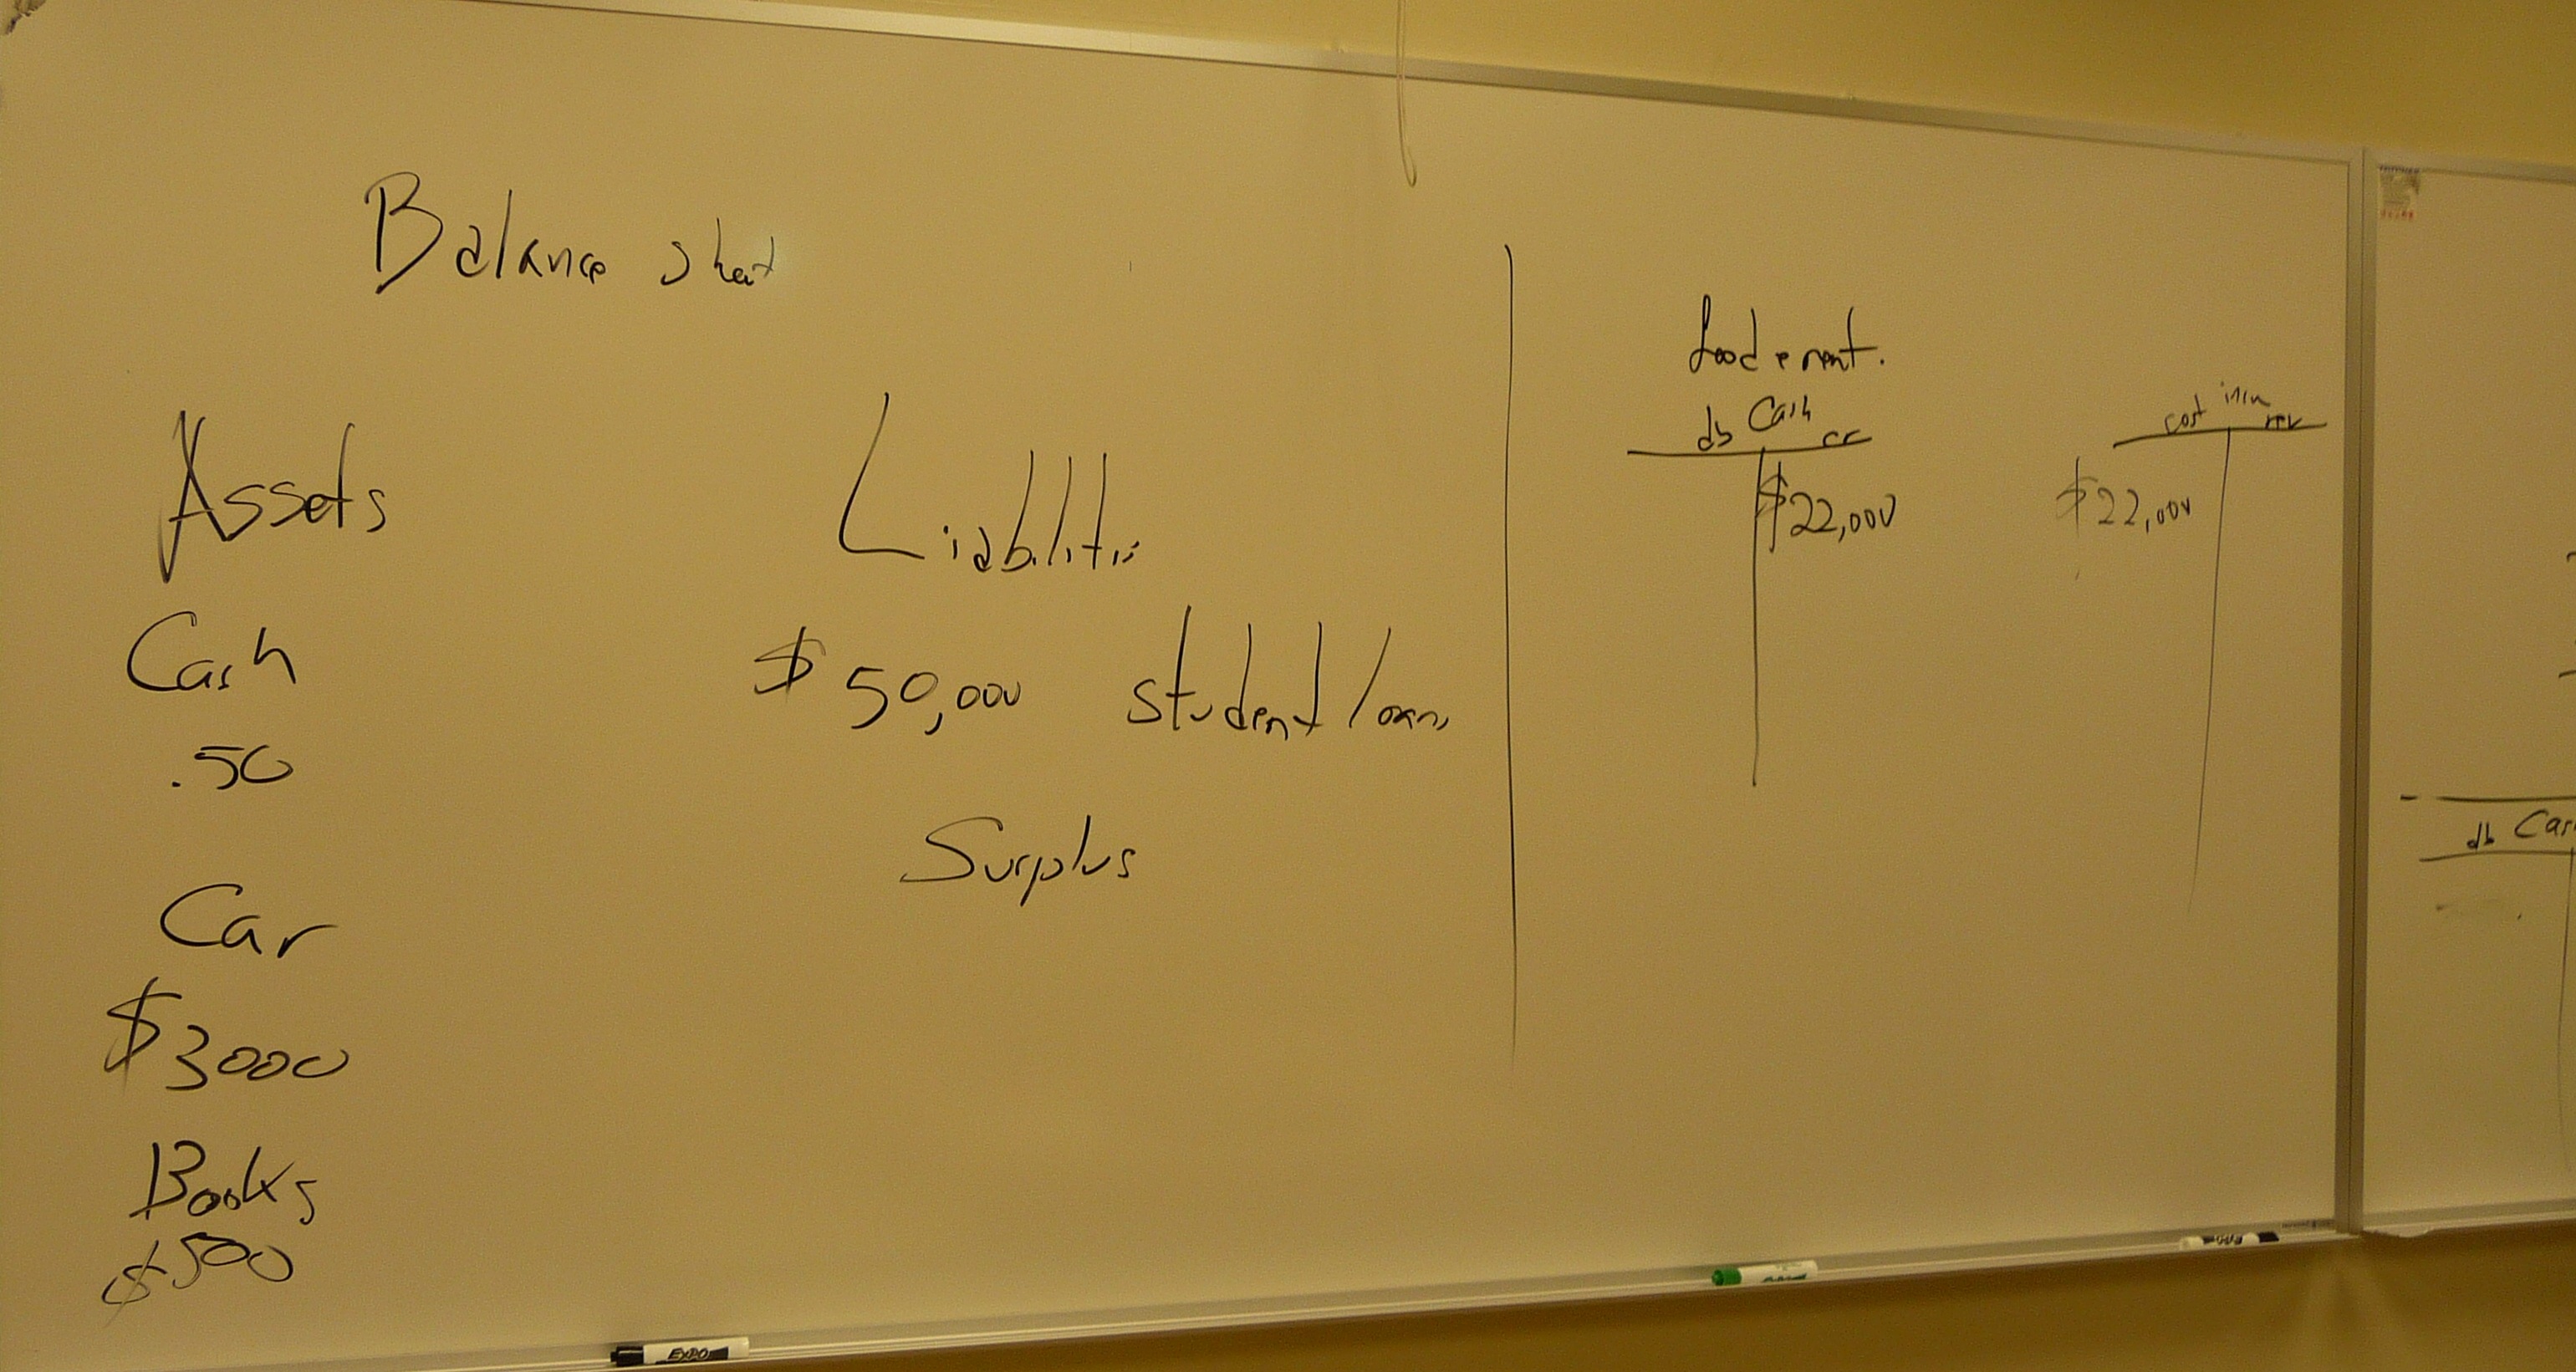 Balance sheet
Assets
Liabilities
Cash
.50
$50,000 student loans
Surplus
Car
$3000
Books
$500
food & rent.
db Cash cr
$22,000
cost rev
$22,000
db
EXPO